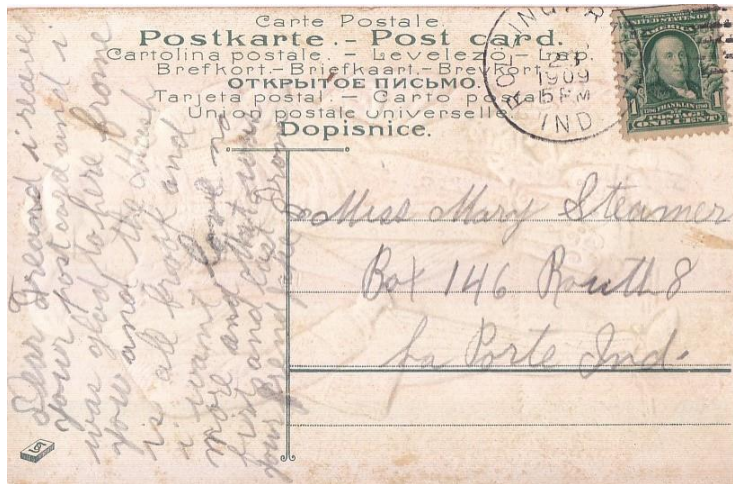 Carte Postale.
Postkarte. - Post card.
Cartolina postale. - Levelező-Lap.
Brefkort.-Briefkaart.-Brevkort.
ОТКРЫТОЕ ПИСЬМО.
Tarjeta postal - Carto postal
Union postale universelle
Dopisnice.
1909
5 PM
IND
UNITED STATES OF
AMERICA
FRANKLIN
POSTAGE
ONE CENT
Miss Mary Steamer
Box 146 Routh 8
La Porte Ind.
Dear Freand i reacived
your postcard and i
was glad to here frome
you and the
is all brook and
i want have no
more and that was
first and last From
your frend